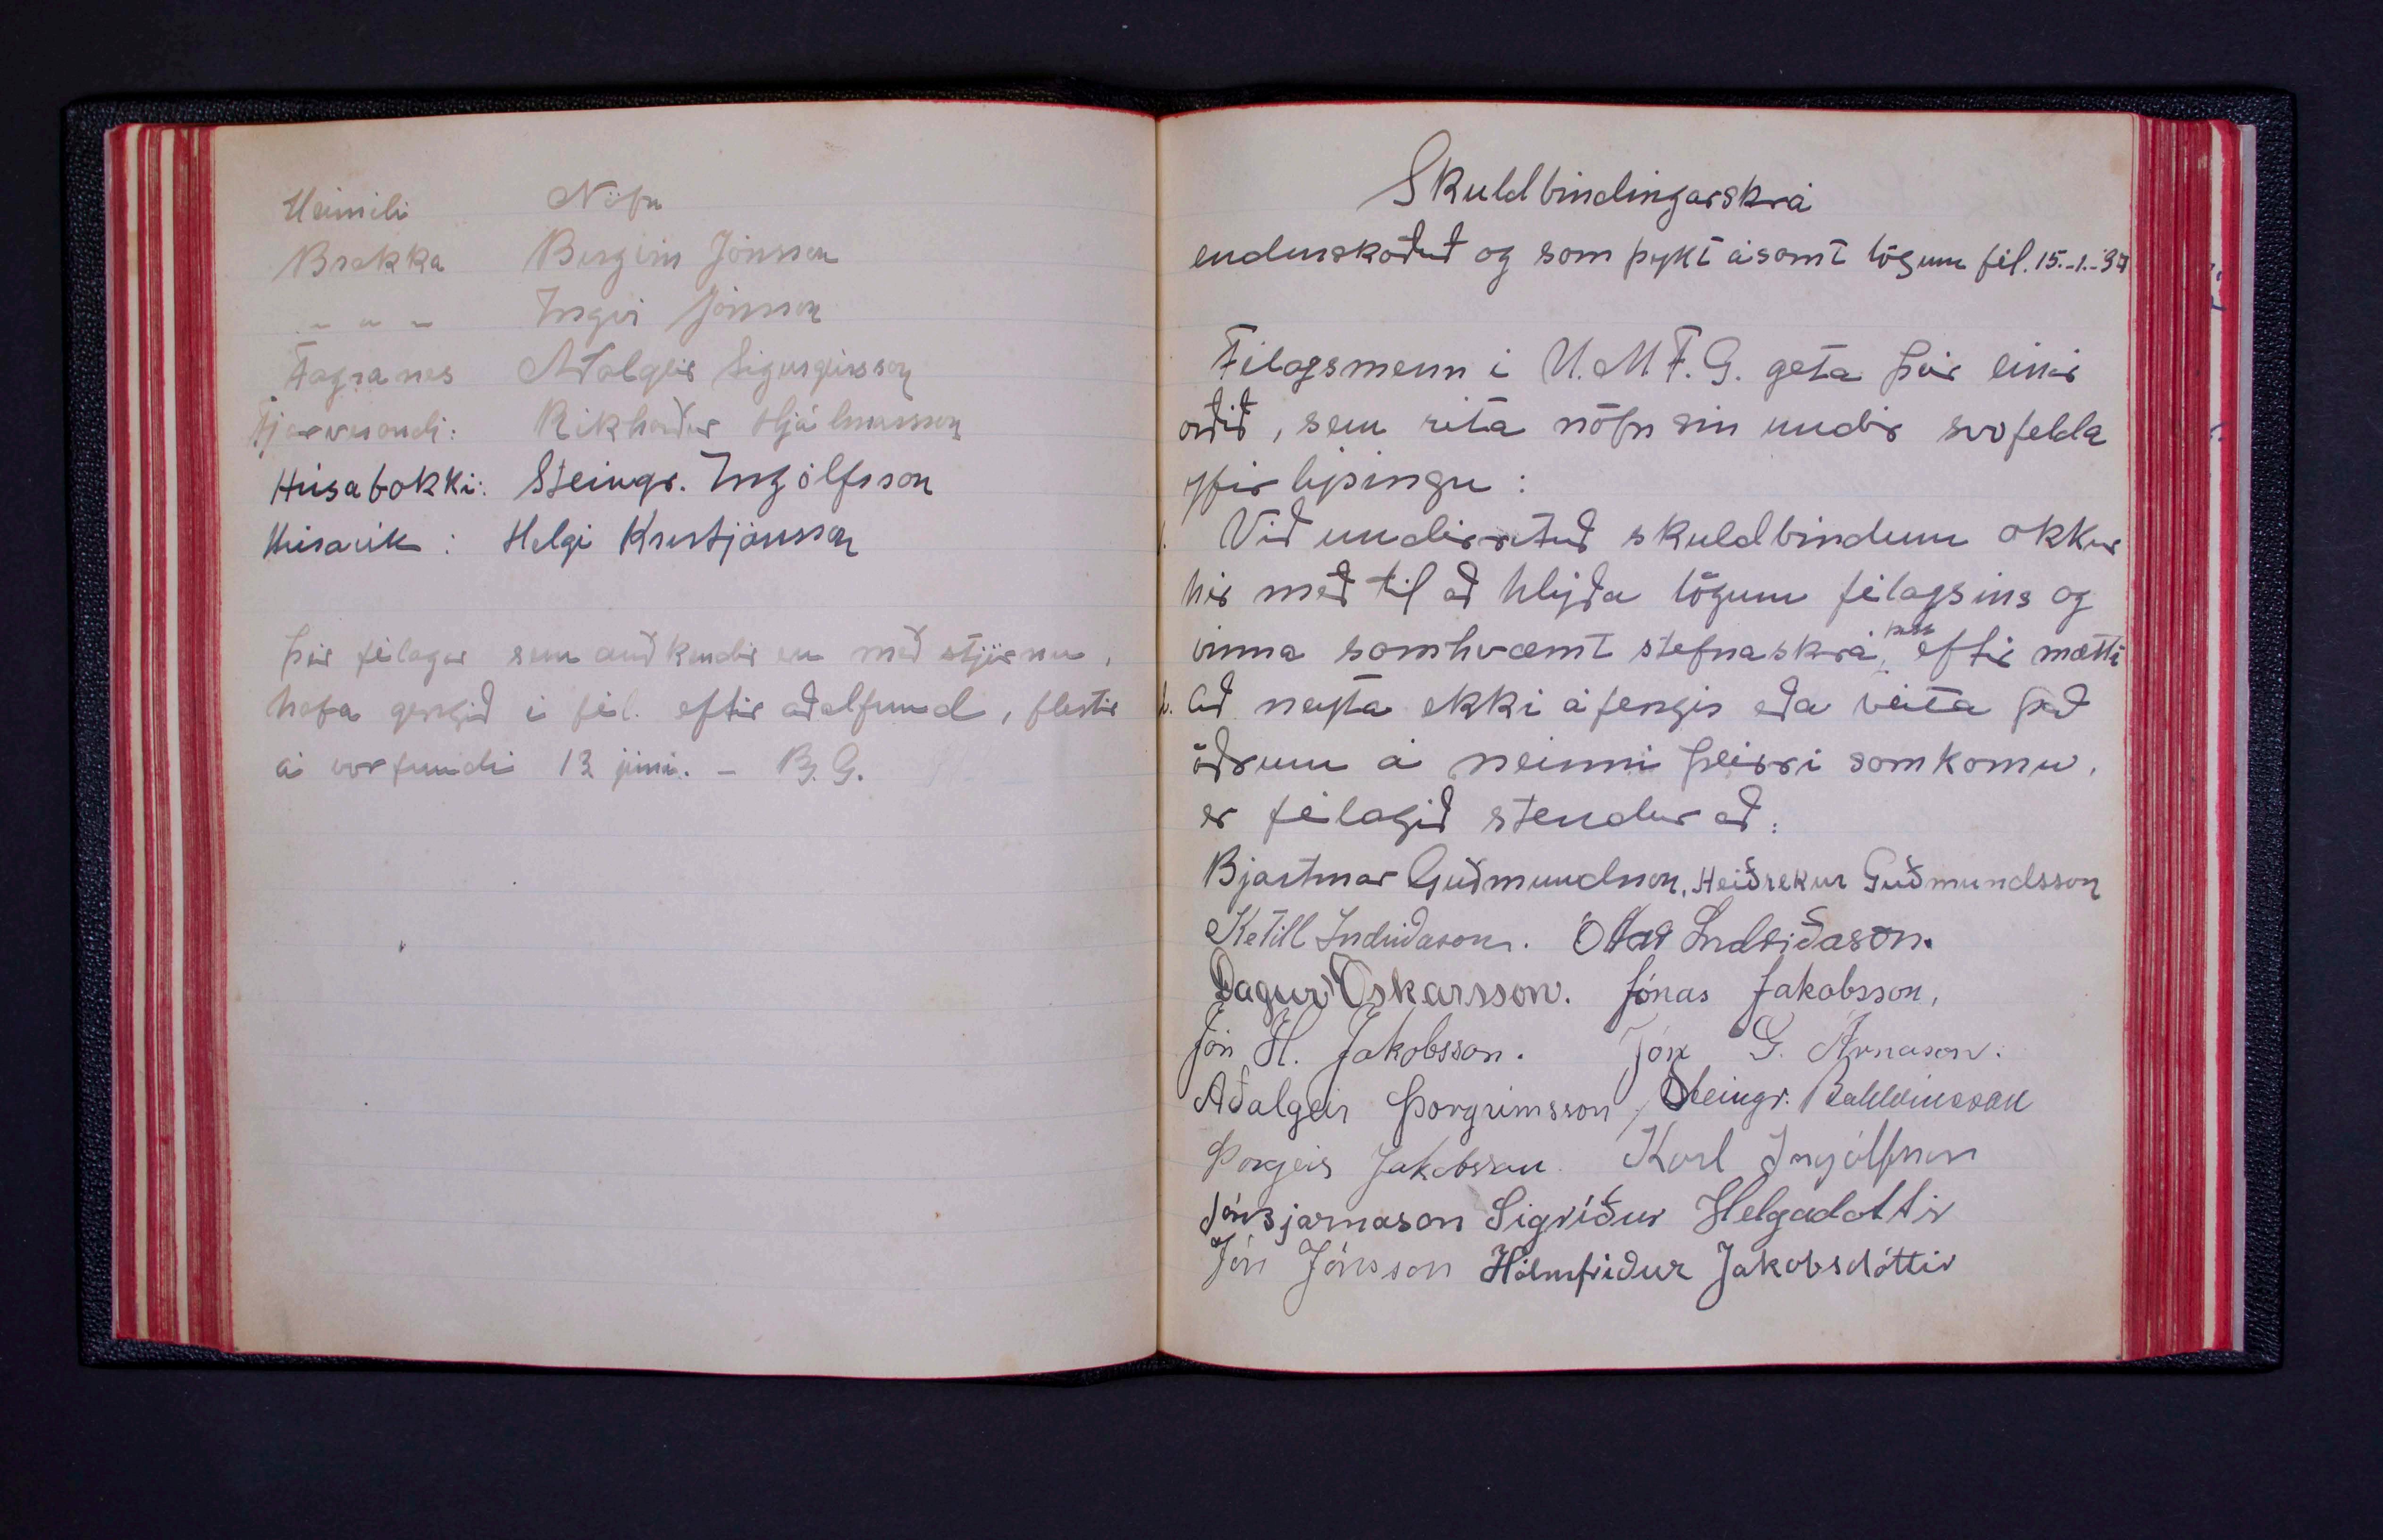 Heimili Nöfn
Brekka Bergvin Jónsson
- " - Ingvi Jónsson
Fagranes Aðalgeir Sigurgeirsson
Ríkharður Hjálmarsson
Húsabakki: Steingr. Ingólfsson
Húsavík: Helgi Kristjánsson
Þeir félagar sem auðkendir eru með stjörnu,
hafa gengið í fél. eftir aðalfund, flestir
á vorfundi 13 júní. - B. G.
Skuldbindingarskrá
endurskoðuð og samþykt ásamt lögum fél. 15.-1.-37
Félagsmenn í U.M.F.G. geta þeir einir
orðið, sem rita nöfn sín undir svofelda
yfirlýsingu:
1. Við undirrituð skuldbindum okkur
hér með til að hlýða lögum félagsins og
vinna samkvæmt stefnuskrá þess eftir mætti
2. Að neyta ekki áfengis eða veita það
öðrum á neinni þeirri samkomu,
er félagið stendur að:
Bjartmar Guðmundsson, Heiðrekur Guðmundsson
Ketill Indriðason. Óttar Indriðason.
Dagur Óskarsson. Jónas Jakobsson,
Jón H. Jakobsson. Jón G. Árnason.
Aðalgeir Þorgrímsson, Steingr. Baldvinsson
Þorgeir Jakobsson. Karl Ingólfsson
Jón Bjarnason Sigríður Helgadóttir
Jón Jónsson Hólmfríður Jakobsdóttir